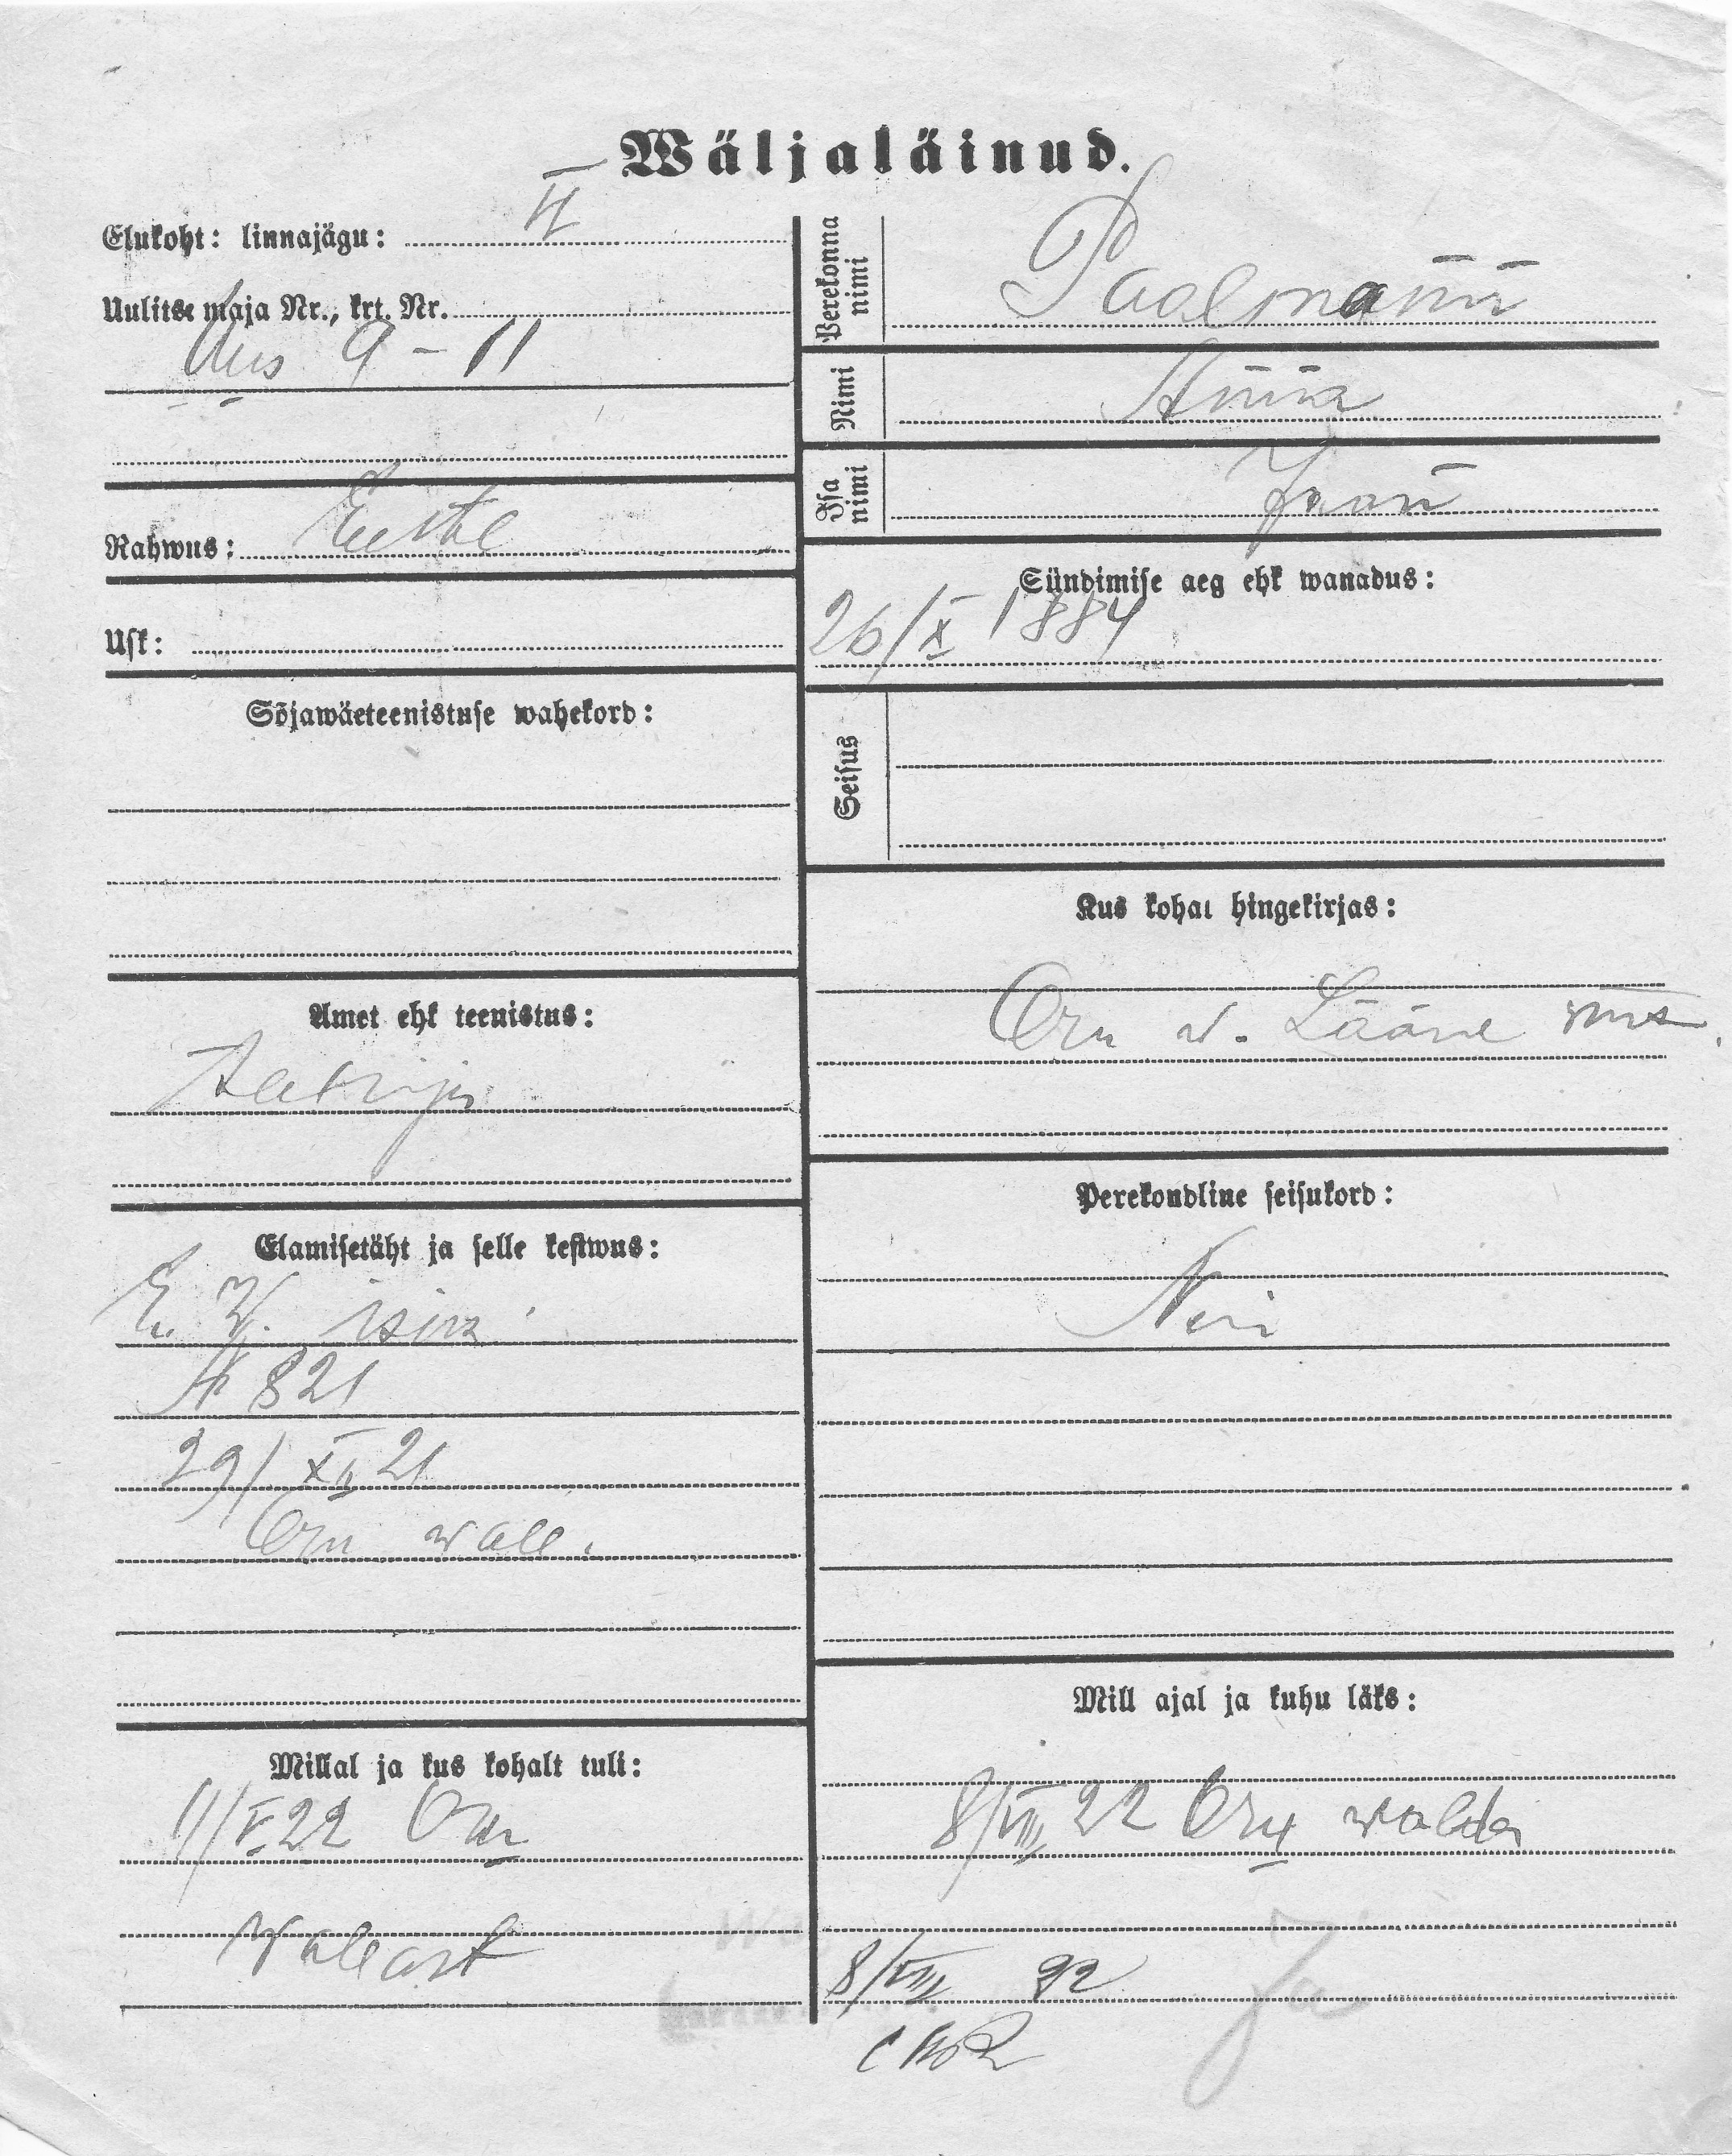 Wäljaläinud.
Elukoht: linnajägu: II
Uulitse maja Nr., krt. Nr.
Uus 9 - 11
Rahwus: Eestl
Usk:
Sõjawäeteenistuse wahekord:
Amet ehk teenistus:
Elamisetäht ja selle kestwus:
E. W. isik
№ 821
29/XII 21
Oru wall.
Millal ja kus kohalt tuli:
11/V 22 Oru
Wallast
Perekonna nimi
Paalmann
Nimi
Anna
Isa nimi
Jaan
Sündimise aeg ehk wanadus:
26/X 1884
Seisus
Kus kohal hingekirjas:
Oru w. Lääne
Perekondline seisukord:
Mill ajal ja kuhu läks:
8/VIII 22 Oru walda
8/VIII 22
Ja